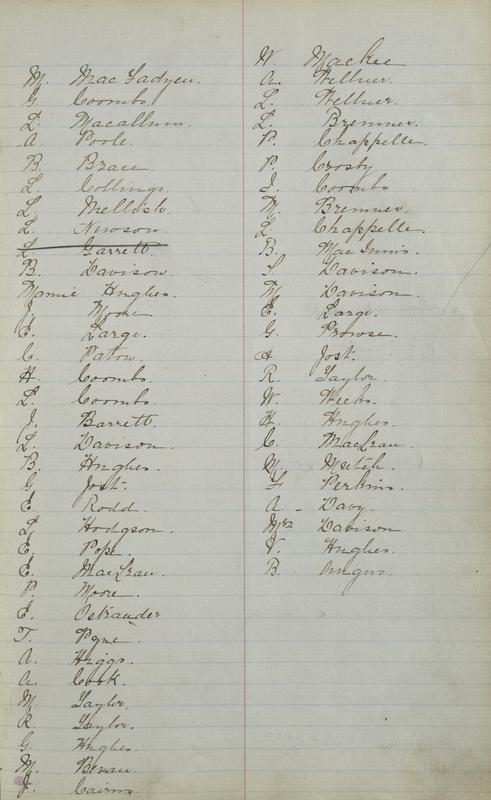 M. MacFadyen.
G. Coombs
L. Macallum.
A. Poole.
B. Brace
L. Collings
L. Mellish.
L. Newson
L. Garrett.
B. Davison.
Mamie Hughes.
J. Moore
E. Large.
C. Paton.
H. Coombs.
L. Coombs.
J. Barrett.
L. Davison.
B. Hughes.
G. Jost.
E. Rodd.
L. Hodgson.
E. Pope.
E. MacLean.
P. Moore.
E. Ostrander
T. Pyne.
A. Higgs.
A. Cook.
M. Taylor.
R. Taylor.
G. Hughes.
M. Bevan.
J. Cairns.
W. MacKee
A. Wellner.
L. Wellner.
L. Bremner.
P. Chappelle.
P. Crosby
J. Coombs
M. Bremner.
L. Chappelle.
B. MacInnis.
S. Davison.
M. Davison.
E. Large.
G. Prowse.
A. Jost.
R. Taylor.
W. Weeks.
H. Hughes.
C. MacLean.
M. Mutch.
F. Perkins.
A. Davy.
Mrs Davison
V. Hughes.
B. Angus.